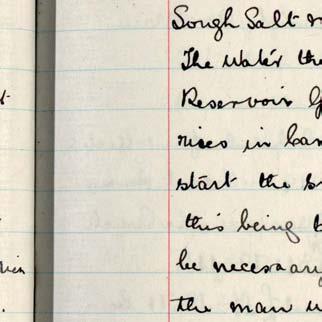 Sough Salt
The Water the
Reservoir
rises in
start the
this being
be necessary
the man